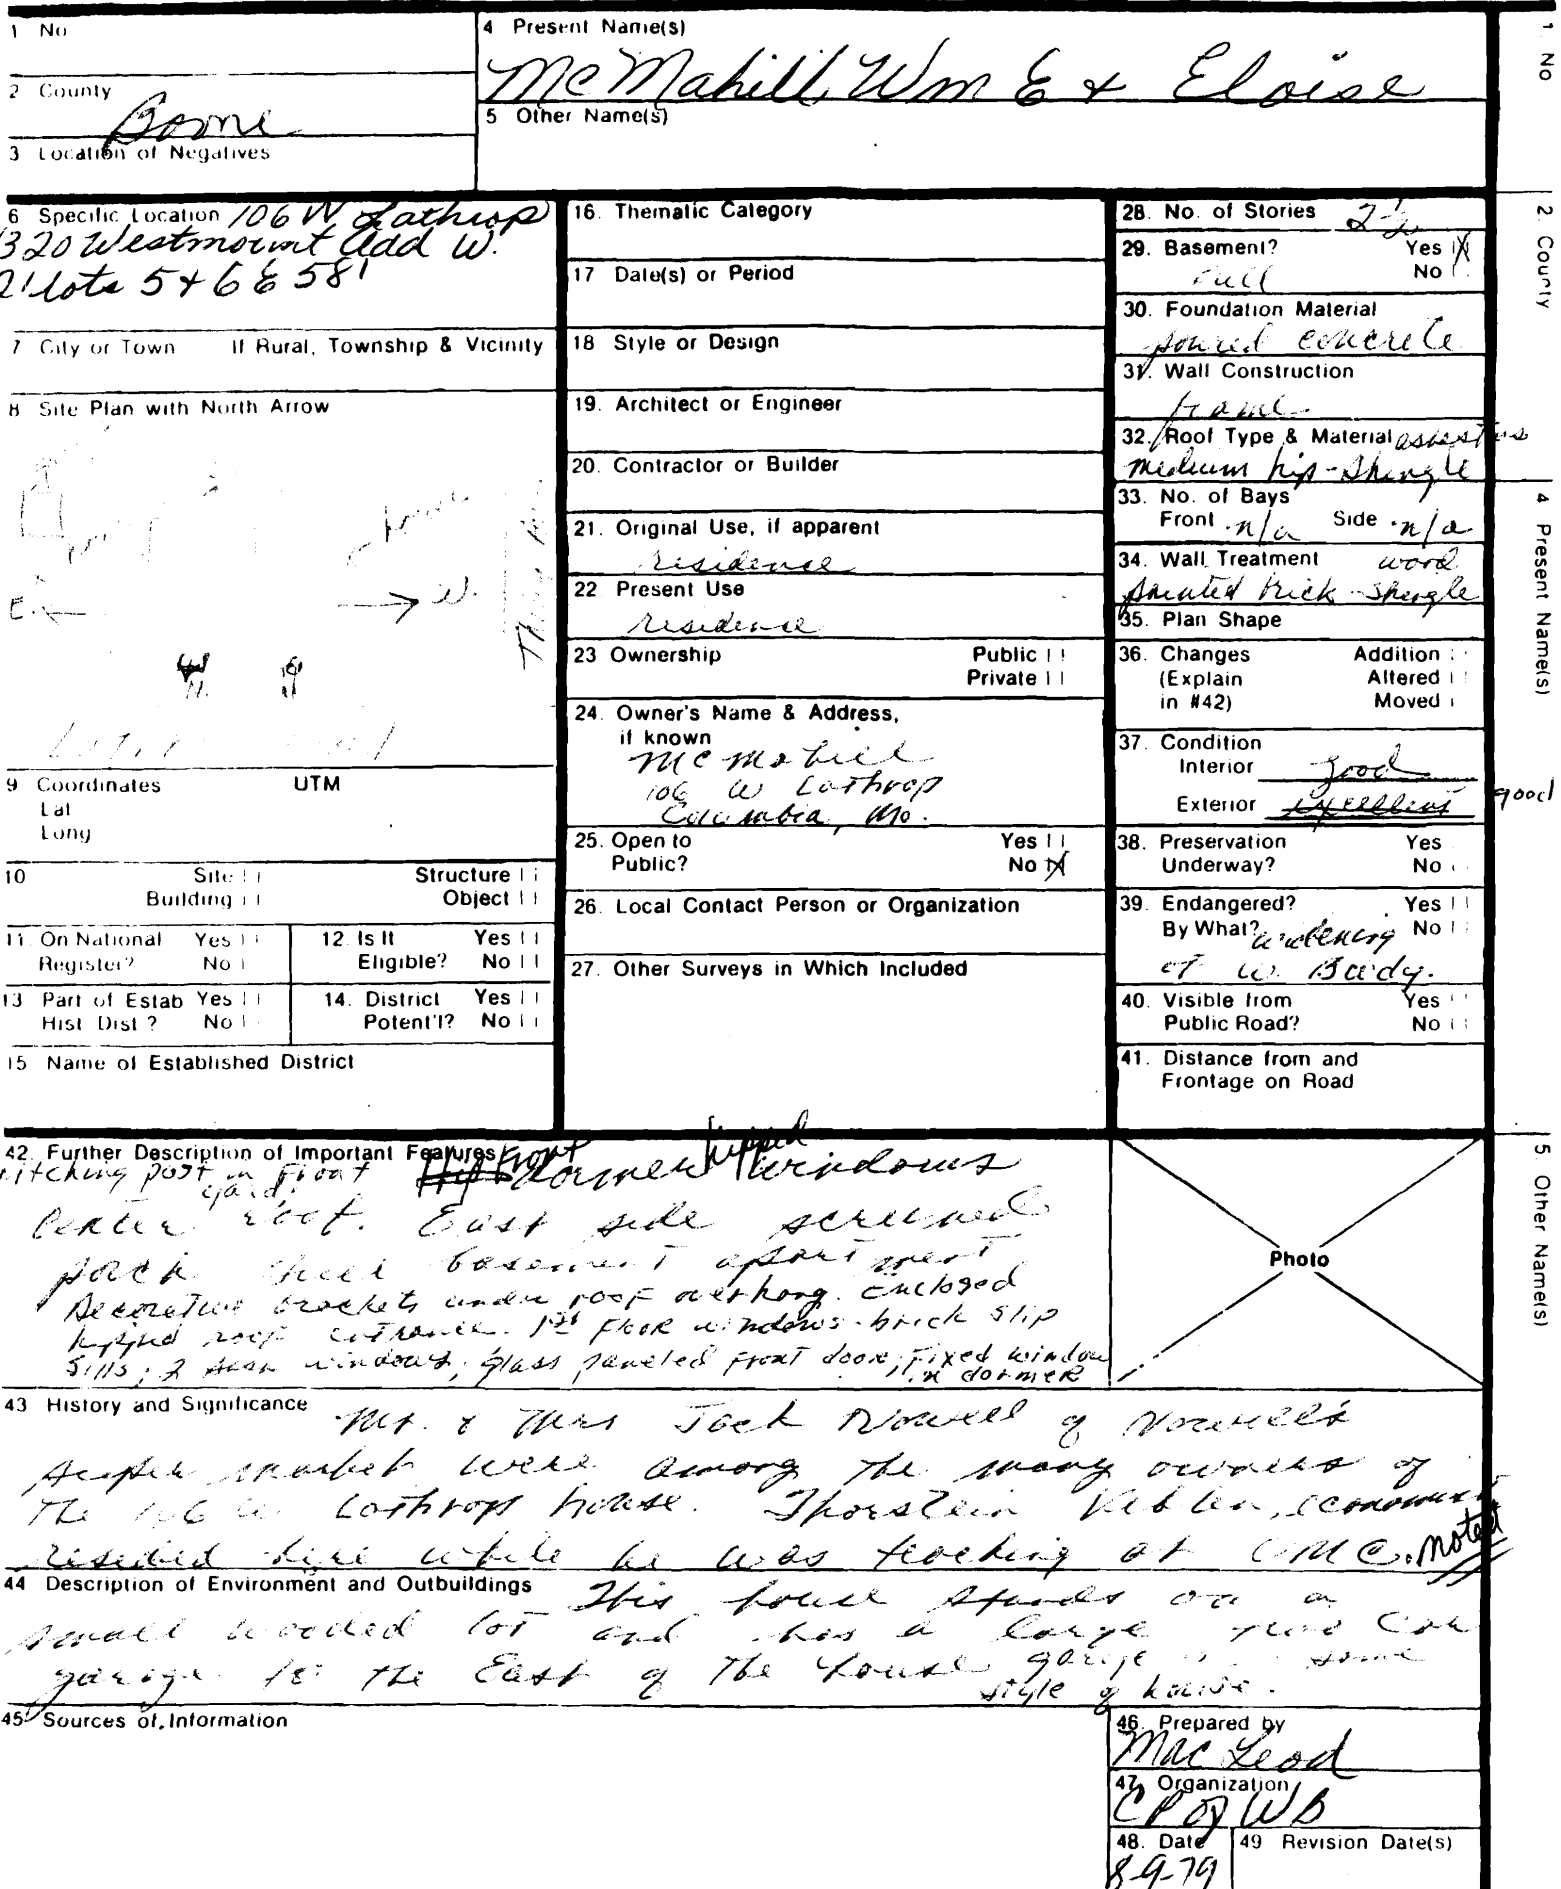 1 No
4 Present Name(s)
McMahill, Wm E & Eloise
2 County
Boone
5 Other Name(s)
3 Location of Negatives
6 Specific Location 106 W Lathrop
320 Westmount Add W.
2' lots 5 & 6 & 58'
7 City or Town If Rural, Township & Vicinity
8 Site Plan with North Arrow
E.
W.
N.
9 Coordinates UTM
Lat
Long
10 Site Structure
Building Object
11. On National Register? Yes No
12. Is It Eligible? Yes No
13 Part of Estab Hist Dist? Yes No
14. District Potent'l? Yes No
15 Name of Established District
16. Thematic Category
17 Date(s) or Period
18 Style or Design
19. Architect or Engineer
20. Contractor or Builder
21. Original Use, if apparent
residence
22 Present Use
residence
23 Ownership Public
Private
24. Owner's Name & Address,
if known
McMahill
106 W Lathrop
Columbia, Mo.
25. Open to Yes
Public? No X
26. Local Contact Person or Organization
27. Other Surveys in Which Included
28. No. of Stories 2½
29. Basement? Yes X
full No
30. Foundation Material
poured concrete
31. Wall Construction
frame
32. Roof Type & Material asbestos
medium hip-shingle
33. No. of Bays
Front n/a Side n/a
34. Wall Treatment wood
painted brick shingle
35. Plan Shape
36. Changes Addition
(Explain Altered
in #42) Moved
37. Condition
Interior good
Exterior excellent good
38. Preservation Yes
Underway? No
39. Endangered? Yes
By What? widening No
of W. Bwdy.
40. Visible from Yes
Public Road? No
41. Distance from and
Frontage on Road
42. Further Description of Important Features front hipped
hitching post in front yard. dormer windows
center roof. East side screened
porch basement apartment
Decorative brackets under roof overhang. Enclosed
hipped roof entrance. 1st floor windows - brick slip
sills; 2 windows; glass paneled front door, Fixed window
in dormer
Photo
43 History and Significance Mr. & Mrs Jack Nowell of Nowell's
super market were among the many owners of
the 106 W. Lathrop house. Thorstein Veblen, economist
resided here while he was teaching at UMC. noted
44 Description of Environment and Outbuildings This house stands on a
small wooded lot and has a large two car
garage to the East of the house, garage same
style of house.
45 Sources of Information
46. Prepared by
MacLeod
47. Organization
CP of WB
48. Date 49 Revision Date(s)
8-9-79
1 No
2 County
4 Present Name(s)
5 Other Name(s)